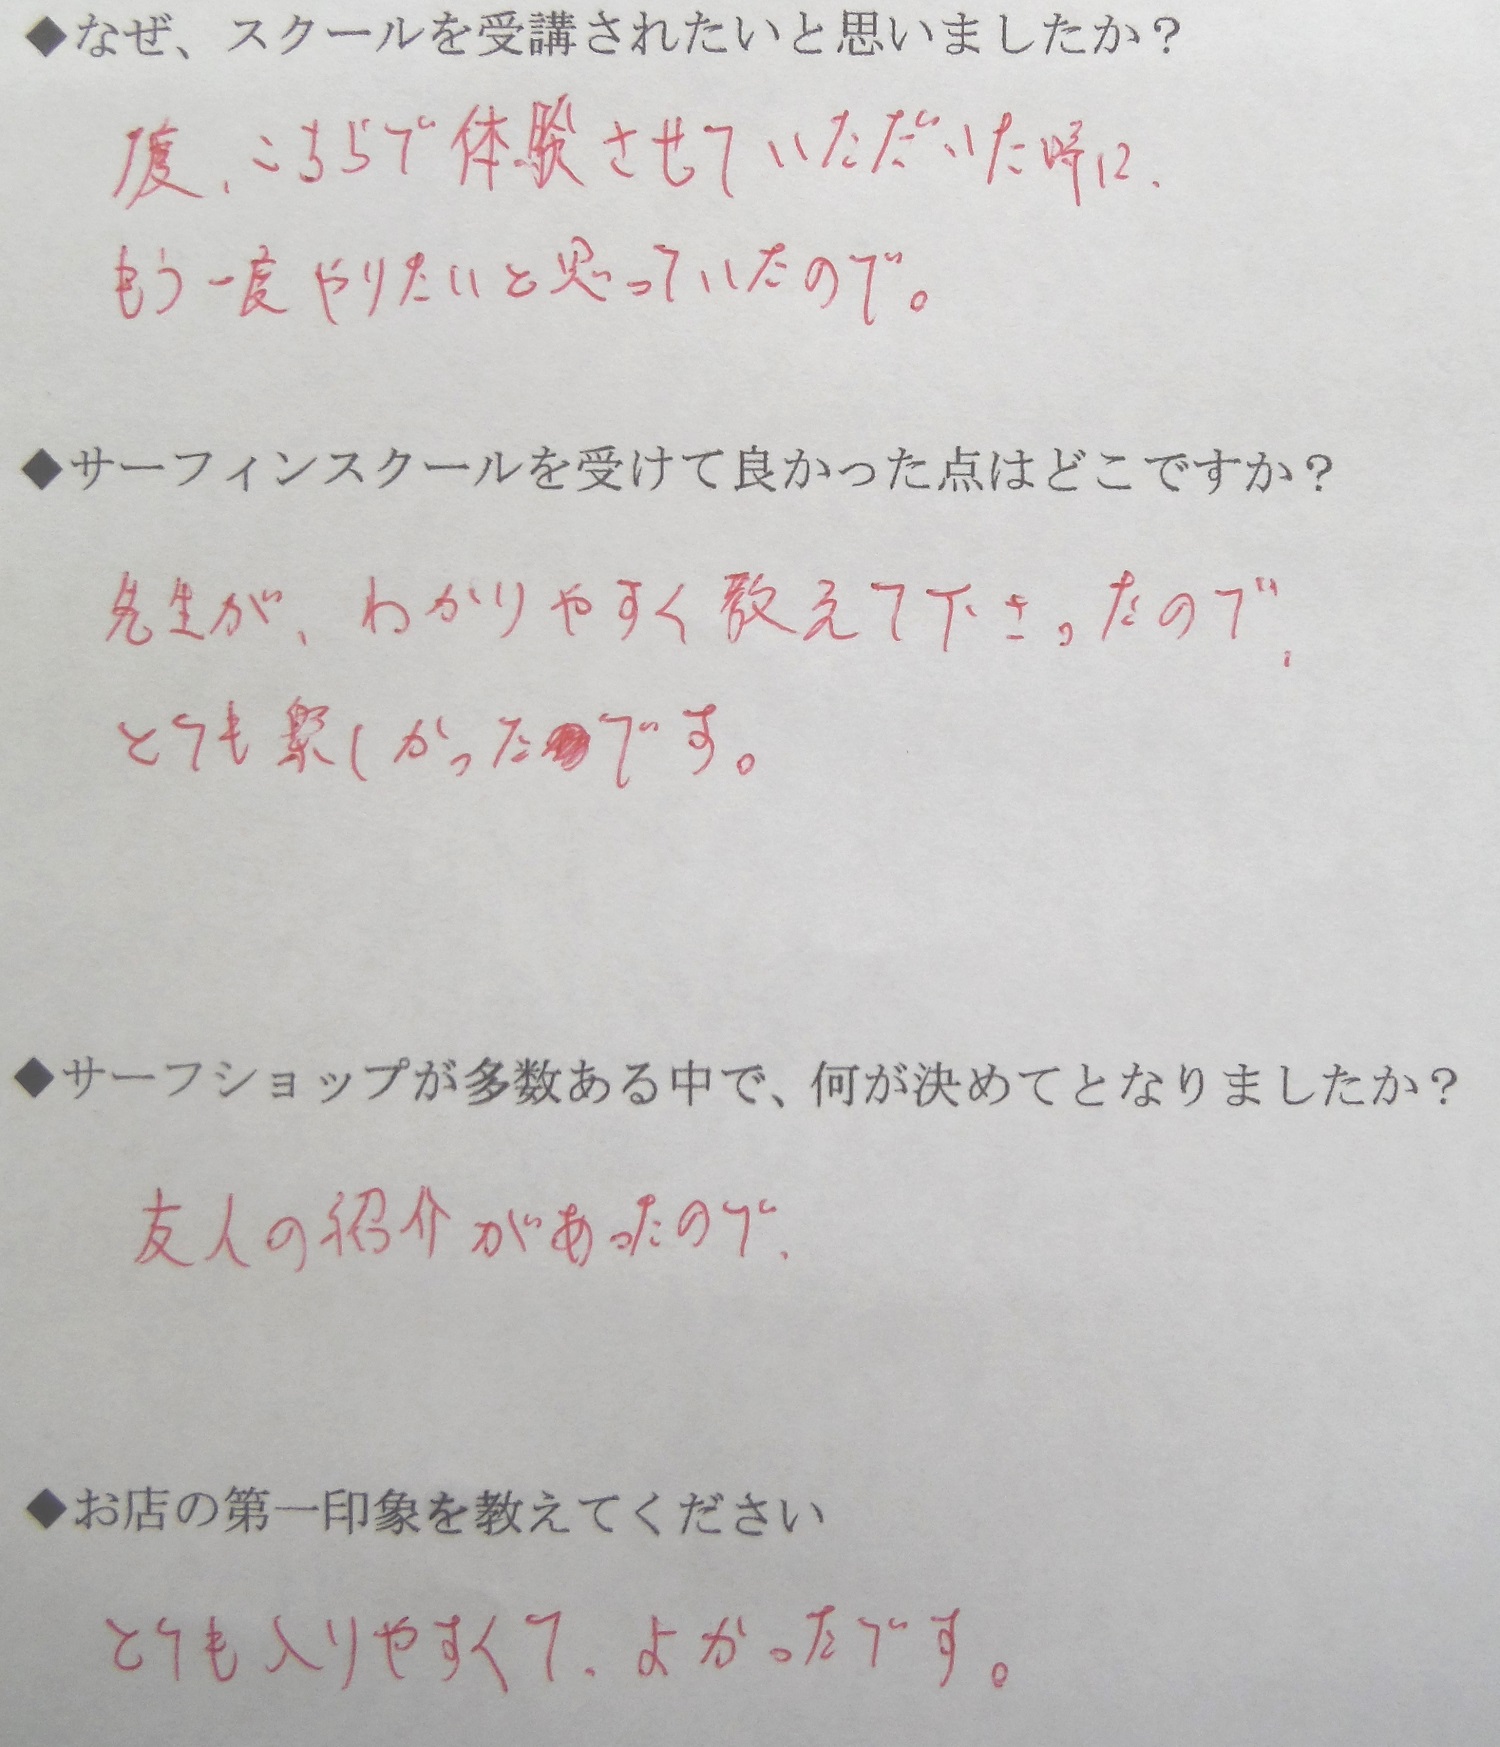 ◆なぜ、スクールを受講されたいと思いましたか？
1度、こちらで体験させていただいた時に、
もう一度やりたいと思っていたので。
◆サーフィンスクールを受けて良かった点はどこですか？
先生が、わかりやすく教えて下さったので、
とても楽しかったです。
◆サーフショップが多数ある中で、何が決めてとなりましたか？
友人の紹介があったので、
◆お店の第一印象を教えてください
とても入りやすくて、よかったです。